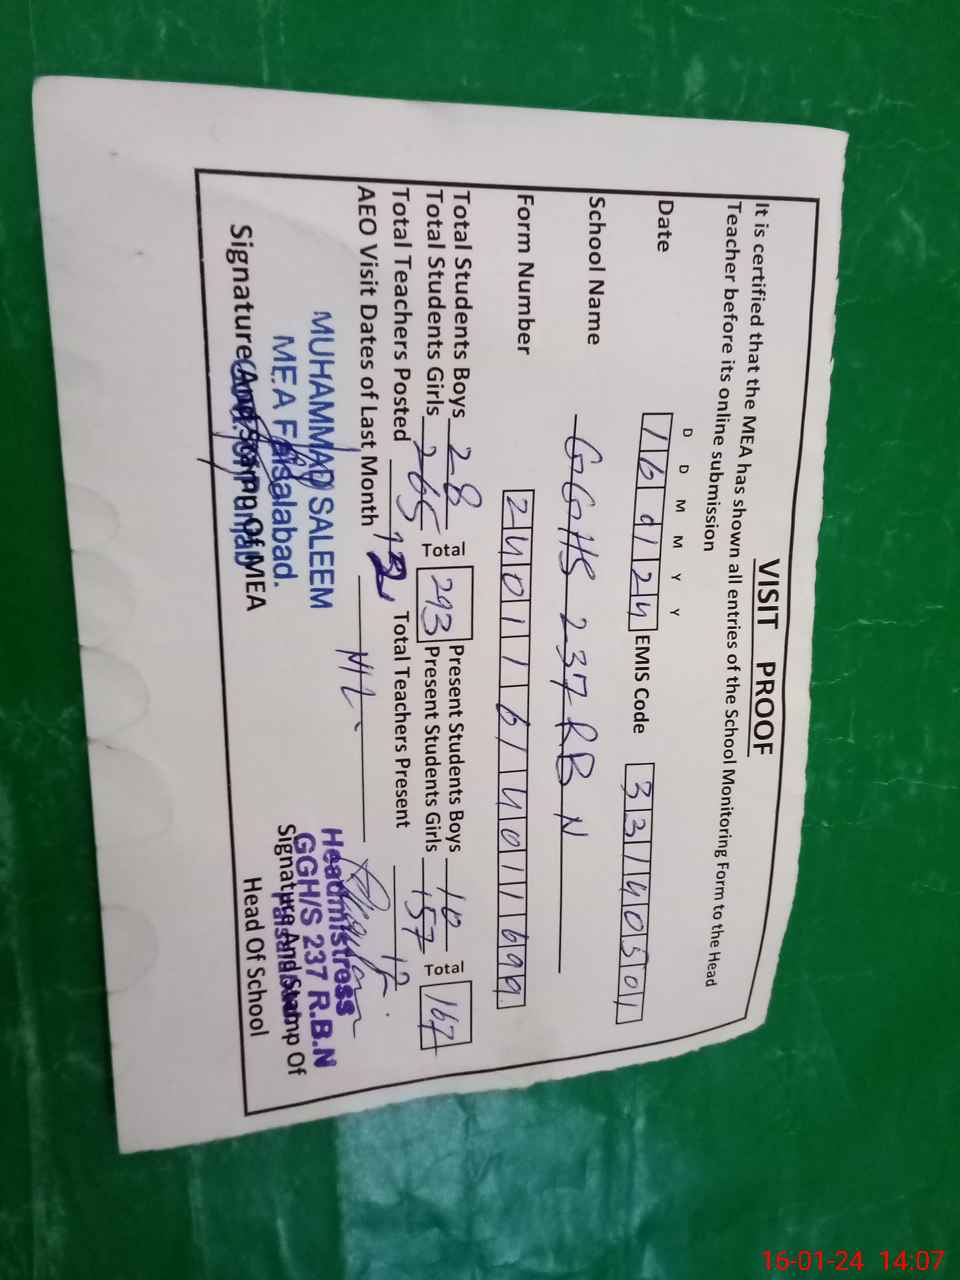 VISIT PROOF
It is certified that the MEA has shown all entries of the School Monitoring Form to the Head
Teacher before its online submission
D D M M Y Y
Date 160124 EMIS Code 33140501
School Name GGHS 237 RB N
Form Number 24011614011699
Total Students Boys 28 Total 293 Present Students Boys 10 Total 167
Total Students Girls 265 Present Students Girls 157
Total Teachers Posted 12 Total Teachers Present 12
AEO Visit Dates of Last Month NIL
MUHAMMAD SALEEM
MEA Faisalabad.
Signature And Stamp Of MEA
Headmistress
GGH/S 237 R.B.N
Faisalabad
Signature And Stamp Of
Head Of School
16-01-24 14:07